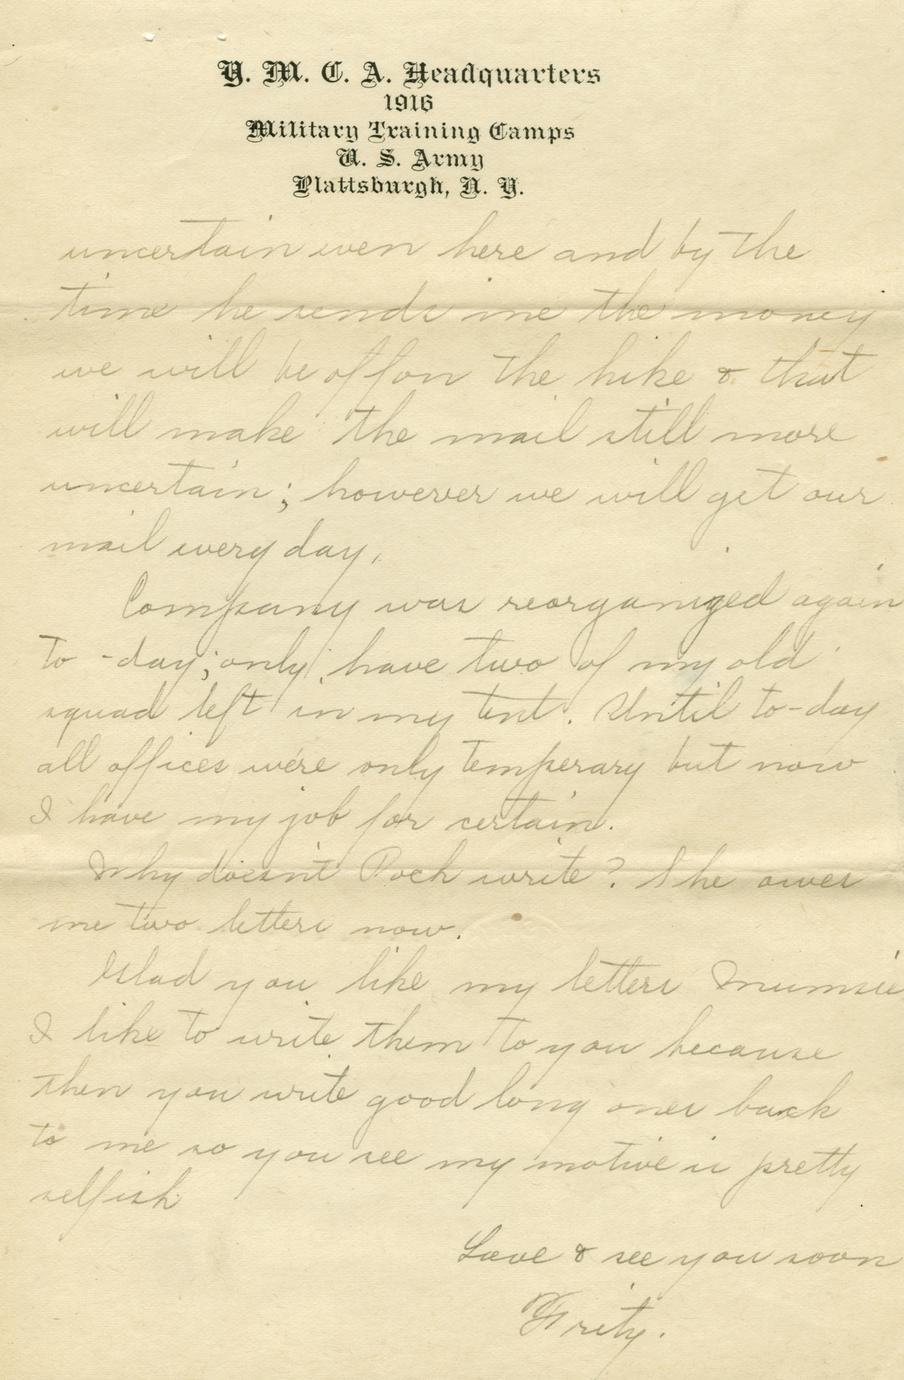 Y. M. C. A. Headquarters
1916
Military Training Camps
U. S. Army
Plattsburgh, N. Y.
uncertain even here and by the
time he sends me the money
we will be off on the hike & that
will make the mail still more
uncertain; however we will get our
mail every day.
Company was reorganized again
to-day; only have two of my old
squad left in my tent. Until to-day
all offices were only temperary but now
I have my job for certain.
Why doesn't Poch write? She owes
me two letters now.
Glad you like my letters Mumsie
I like to write them to you because
then you write good long ones back
to me so you see my motive is pretty
selfish
Love & see you soon
Fritz.